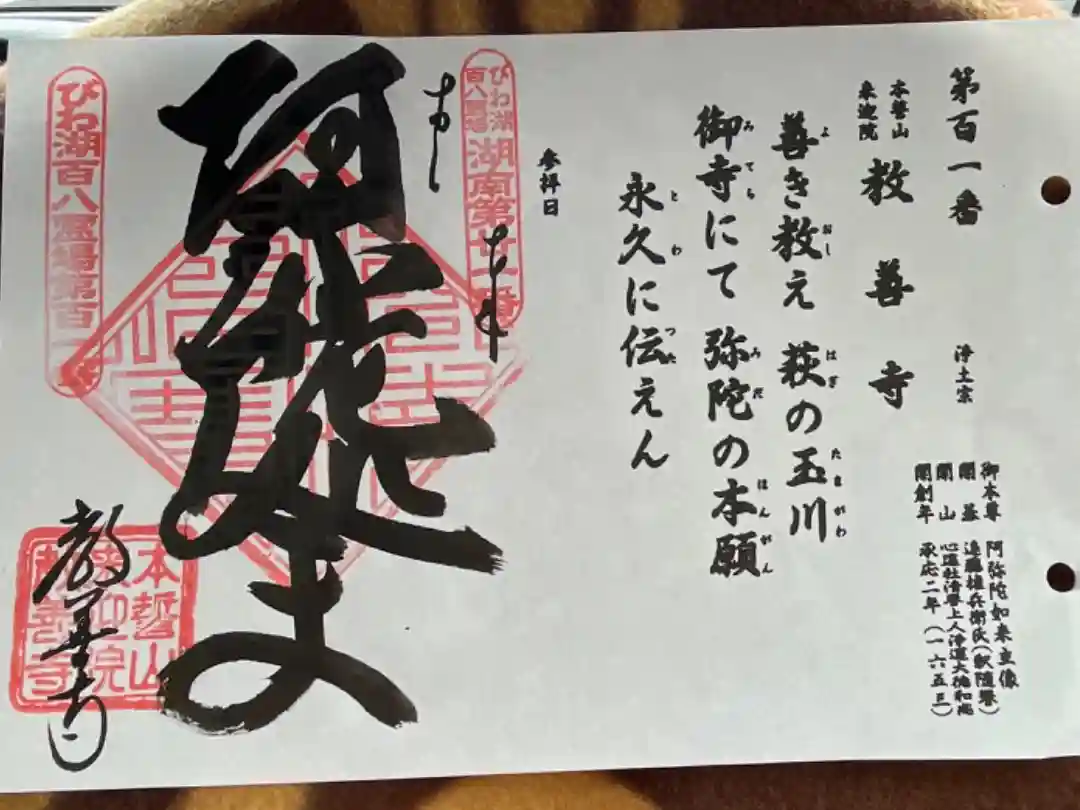 第百一番
本誓山
来迎院
教善寺
浄土宗
御本尊 阿弥陀如来立像
開基 遠藤権兵衛氏(釈随誉)
開山
開創年 承応二年(一六五三)
善き教え 萩の玉川
よ おし はぎ たまがわ
御寺にて 弥陀の本願
みてら みだ ほんがん
永久に伝えん
とわ つた
参拝日
びわ湖
百八霊場
湖南第廿一番
奉
拝
教善寺
本誓山
来迎院
教善寺
びわ湖百八霊場第百一番